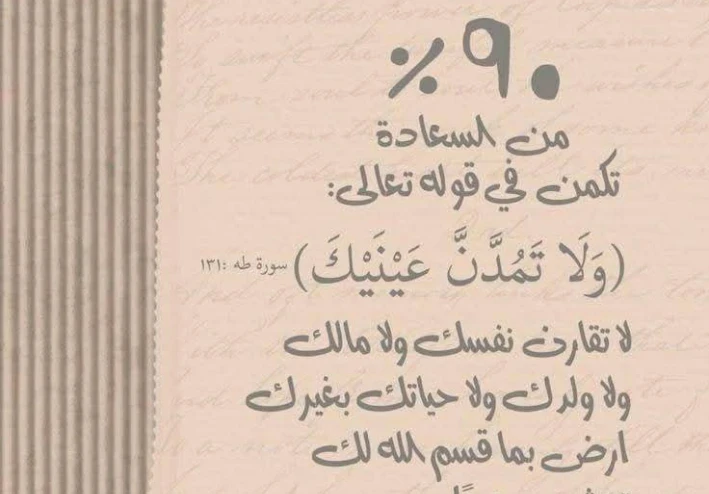 ٩٠٪
من السعادة
تكمن في قوله تعالى:
(وَلَا تَمُدَّنَّ عَيْنَيْكَ) سورة طه :١٣١
لا تقارن نفسك ولا مالك
ولا ولدك ولا حياتك بغيرك
ارض بما قسم الله لك